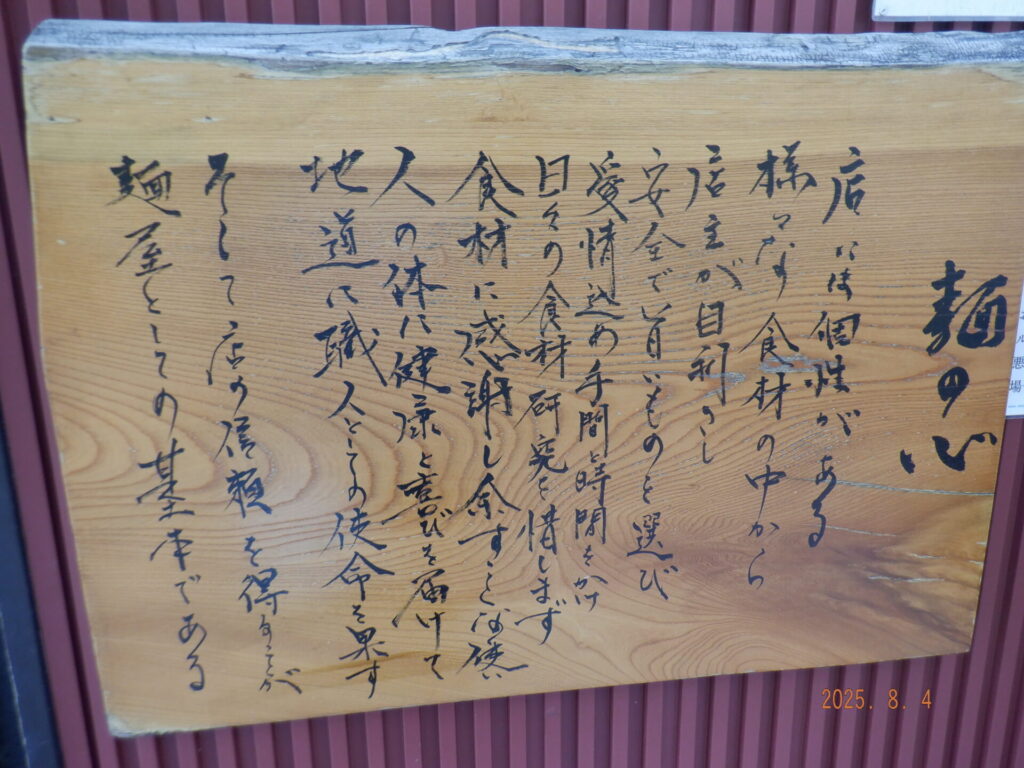 麺の心
店には個性がある
様々な食材の中から
店主が目利きし
安全で旨いものを選び
愛情込め手間と時間をかけ
日々の食材研究を惜しまず
食材に感謝し余すことな使い
人の体に健康と喜びを届けて
地道に職人としての使命を果す
そして店の信頼を得ることが
麺屋としての基本である
悪
場
2025. 8. 4